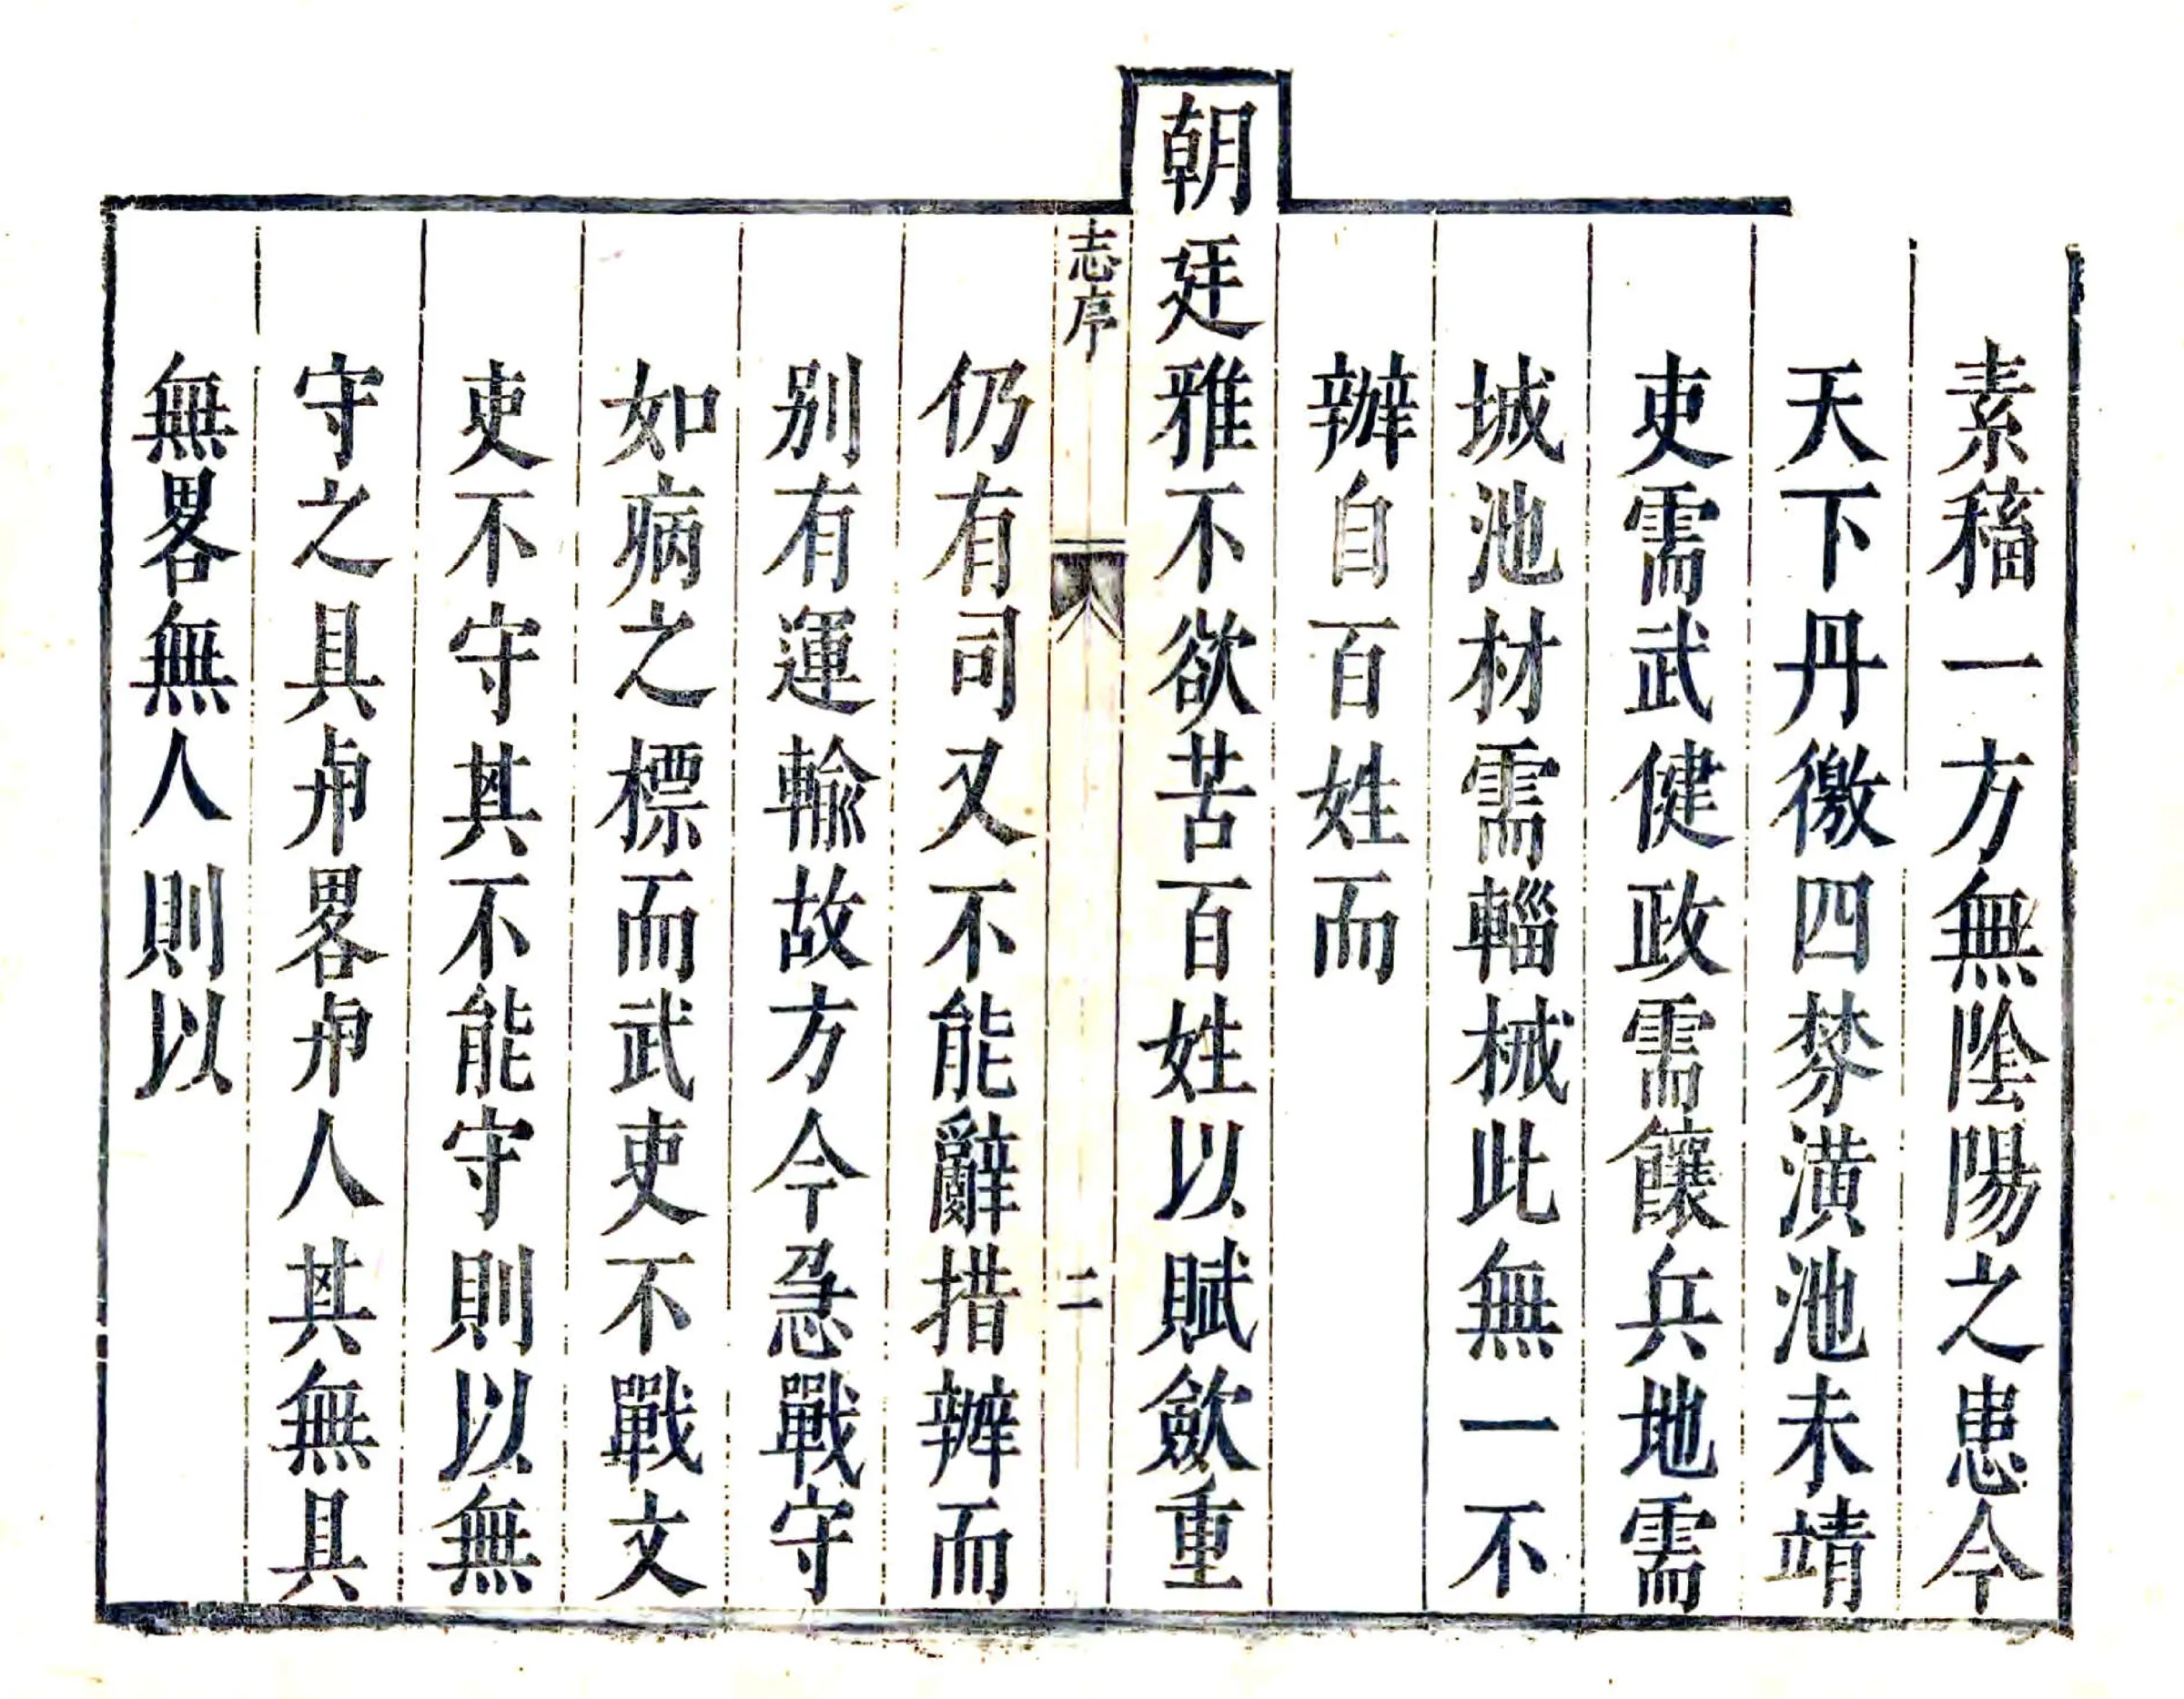 素稸一方無陰陽之患今
天下丹徼四棼潢池未靖
吏需武健政需饟兵地需
城池材需輜械此無一不
辦自百姓而
朝廷雅不欲苦百姓以賦斂重
志序
二
仍有司又不能辭措辦而
别有運輸故方今急戰守
如病之標而武吏不戰文
吏不守其不能守則以無
守之具𠧞畧𠧞人其無具
無畧無人則以